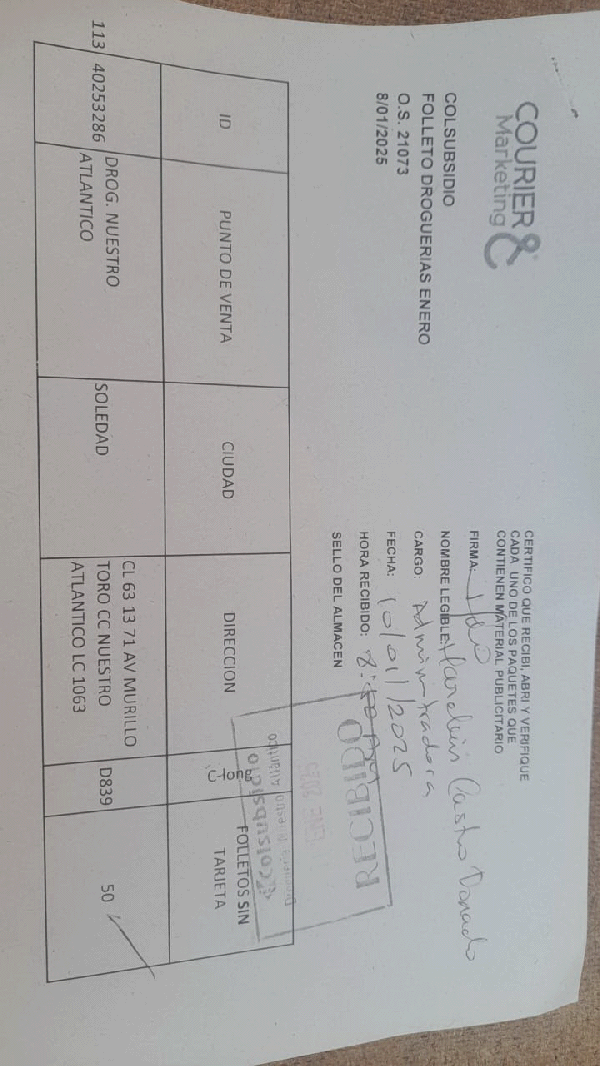 COURIER &
Marketing
COLSUBSIDIO
FOLLETO DROGUERIAS ENERO
O.S. 21073
8/01/2025
CERTIFICO QUE RECIBI, ABRI Y VERIFIQUE
CADA UNO DE LOS PAQUETES QUE
CONTIENEN MATERIAL PUBLICITARIO
FIRMA:
NOMBRE LEGIBLE: Castro Donado
CARGO: Administradora
FECHA: 10/01/2025
HORA RECIBIDO: 8:
SELLO DEL ALMACEN
RECIBIDO
ENE 2025
Colsubsidio
Droguería Nuestro Atlántico
ID PUNTO DE VENTA CIUDAD DIRECCION FOLLETOS SIN
TARJETA
113 40253286 DROG. NUESTRO
ATLANTICO
SOLEDAD
CL 63 13 71 AV MURILLO
TORO CC NUESTRO
ATLANTICO LC 1063
D839
50